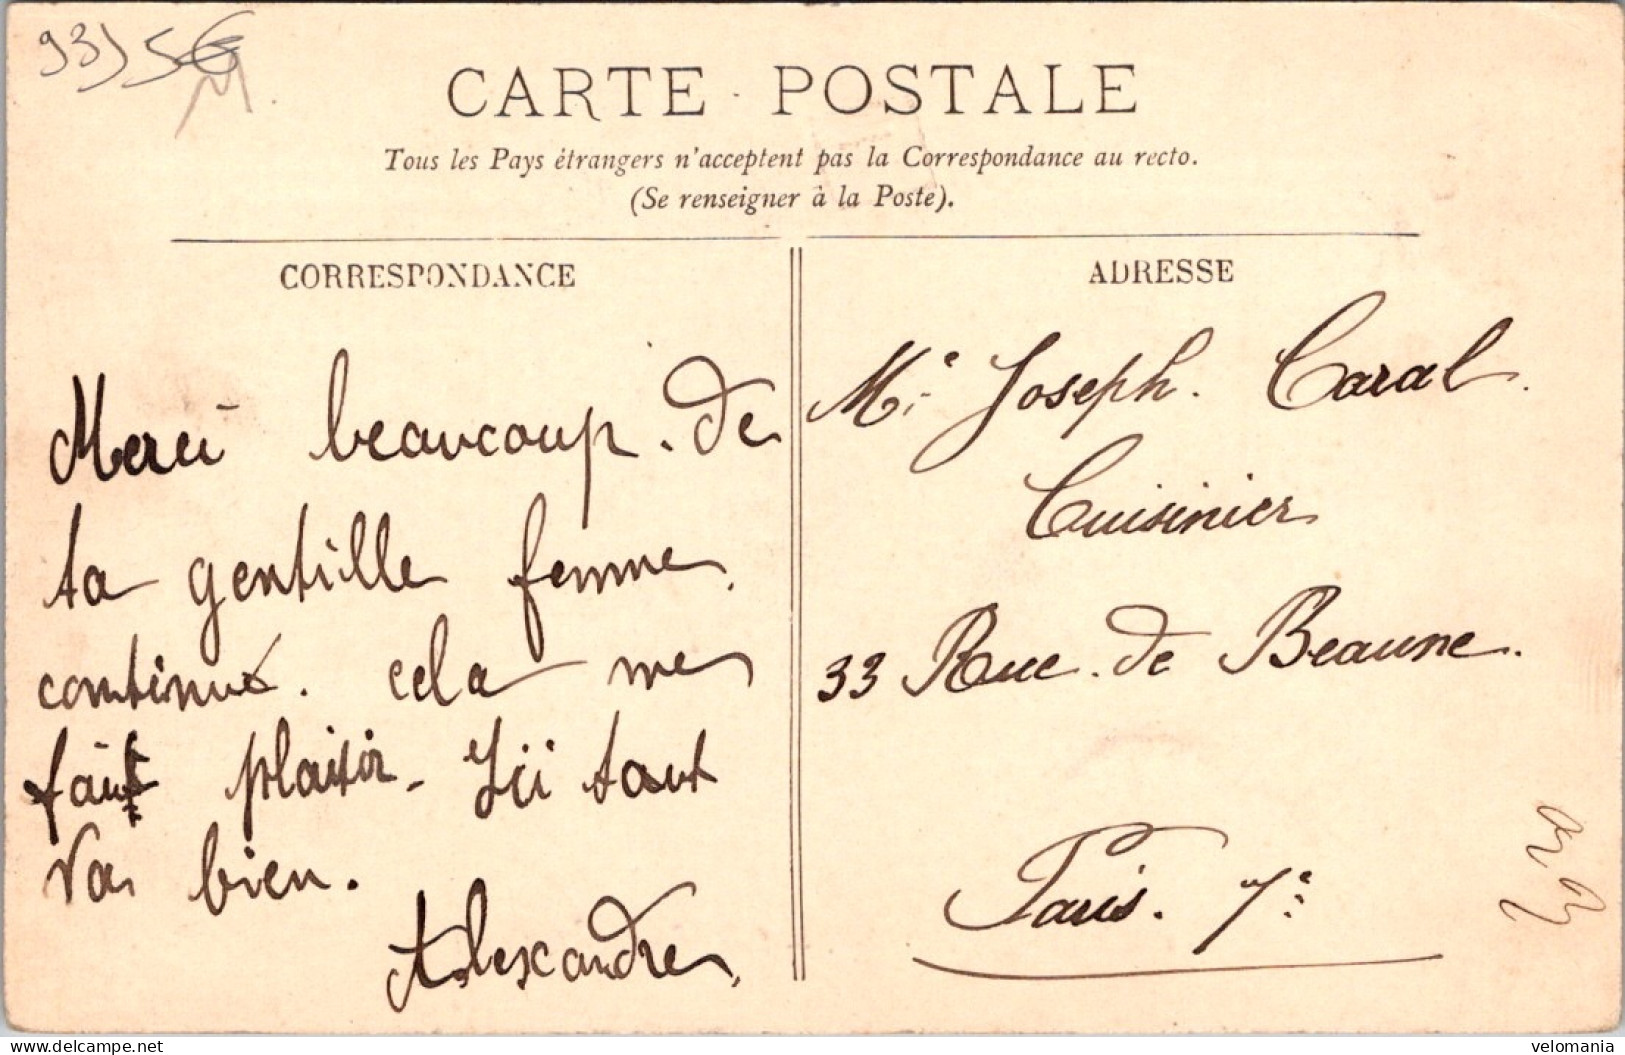 93) 5€
CARTE POSTALE
Tous les Pays étrangers n'acceptent pas la Correspondance au recto.
(Se renseigner à la Poste).
CORRESPONDANCE
Merci beaucoup. de
ta gentille femme.
continué. cela me
fait plaisir - Ici tout
va bien.
Alexandre,
ADRESSE
Mr Joseph. Caral.
Cuisinier
33 Rue. de Beaune.
Paris. 7e
www.delcampe.net
velomania